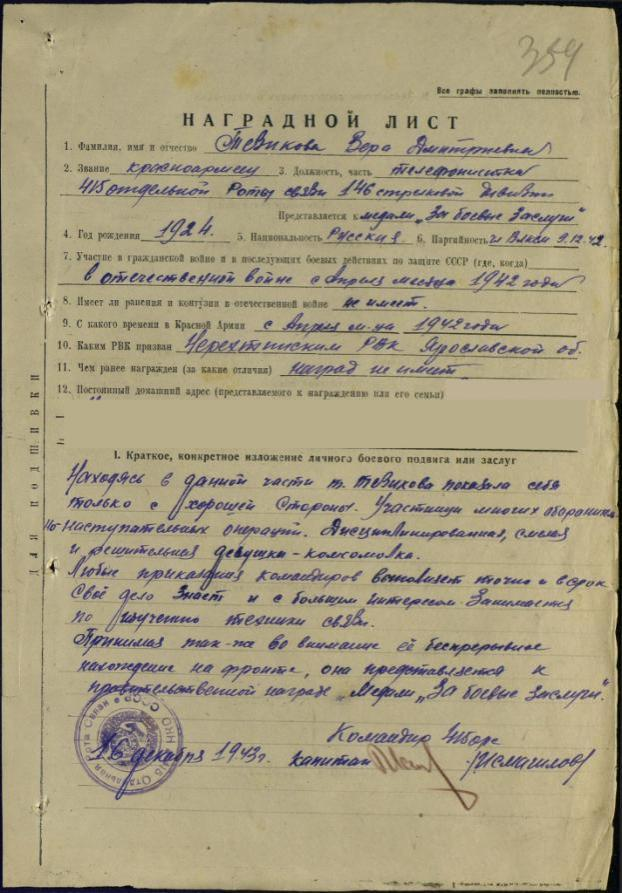 359
Все графы заполнять полностью.
НАГРАДНОЙ ЛИСТ
1. Фамилия, имя и отчество Тевикова Вера Дмитриевна
2. Звание красноармеец 3. Должность, часть телефонистка
415 отдельной Роты связи 146 стрелковой дивизии
Представляется к медали „За боевые Заслуги"
4. Год рождения 1924. 5. Национальность Русская 6. Партийность чл ВЛКСМ 9.12.42.
7. Участие в гражданской войне и в последующих боевых действиях по защите СССР (где, когда)
в отечественной войне с Апреля месяца 1942 года
8. Имеет ли ранения и контузии в отечественной войне не имеет.
9. С какого времени в Красной Армии с Апреля м-ца 1942 года
10. Каким РВК призван Нерехтинским РВК Ярославской об.
11. Чем ранее награжден (за какие отличия) наград не имеет
12. Постоянный домашний адрес (представляемого к награждению или его семьи)
ДЛЯ ПОДШИВКИ
I. Краткое, конкретное изложение личного боевого подвига или заслуг
Находясь в данной части т. Тевикова показала себя
только с хорошей Стороны. Участница многих оборонительно-
наступательных операций. Дисциплинированная, смелая
и решительная девушка-комсомолка.
Любые приказания командиров выполняет точно и в срок
Своё дело Знает и с большим интересом Занимается
по изучению техники связи.
Принимая так-же во внимание её беспрерывное
нахождение на фронте, она представляется к
правительственной награде „Медали „За боевые Заслуги".
Командир 415 орс
16 декабря 1943 г. капитан /Исмагилов/
415 Отдельная Рота Связи НКО СССР